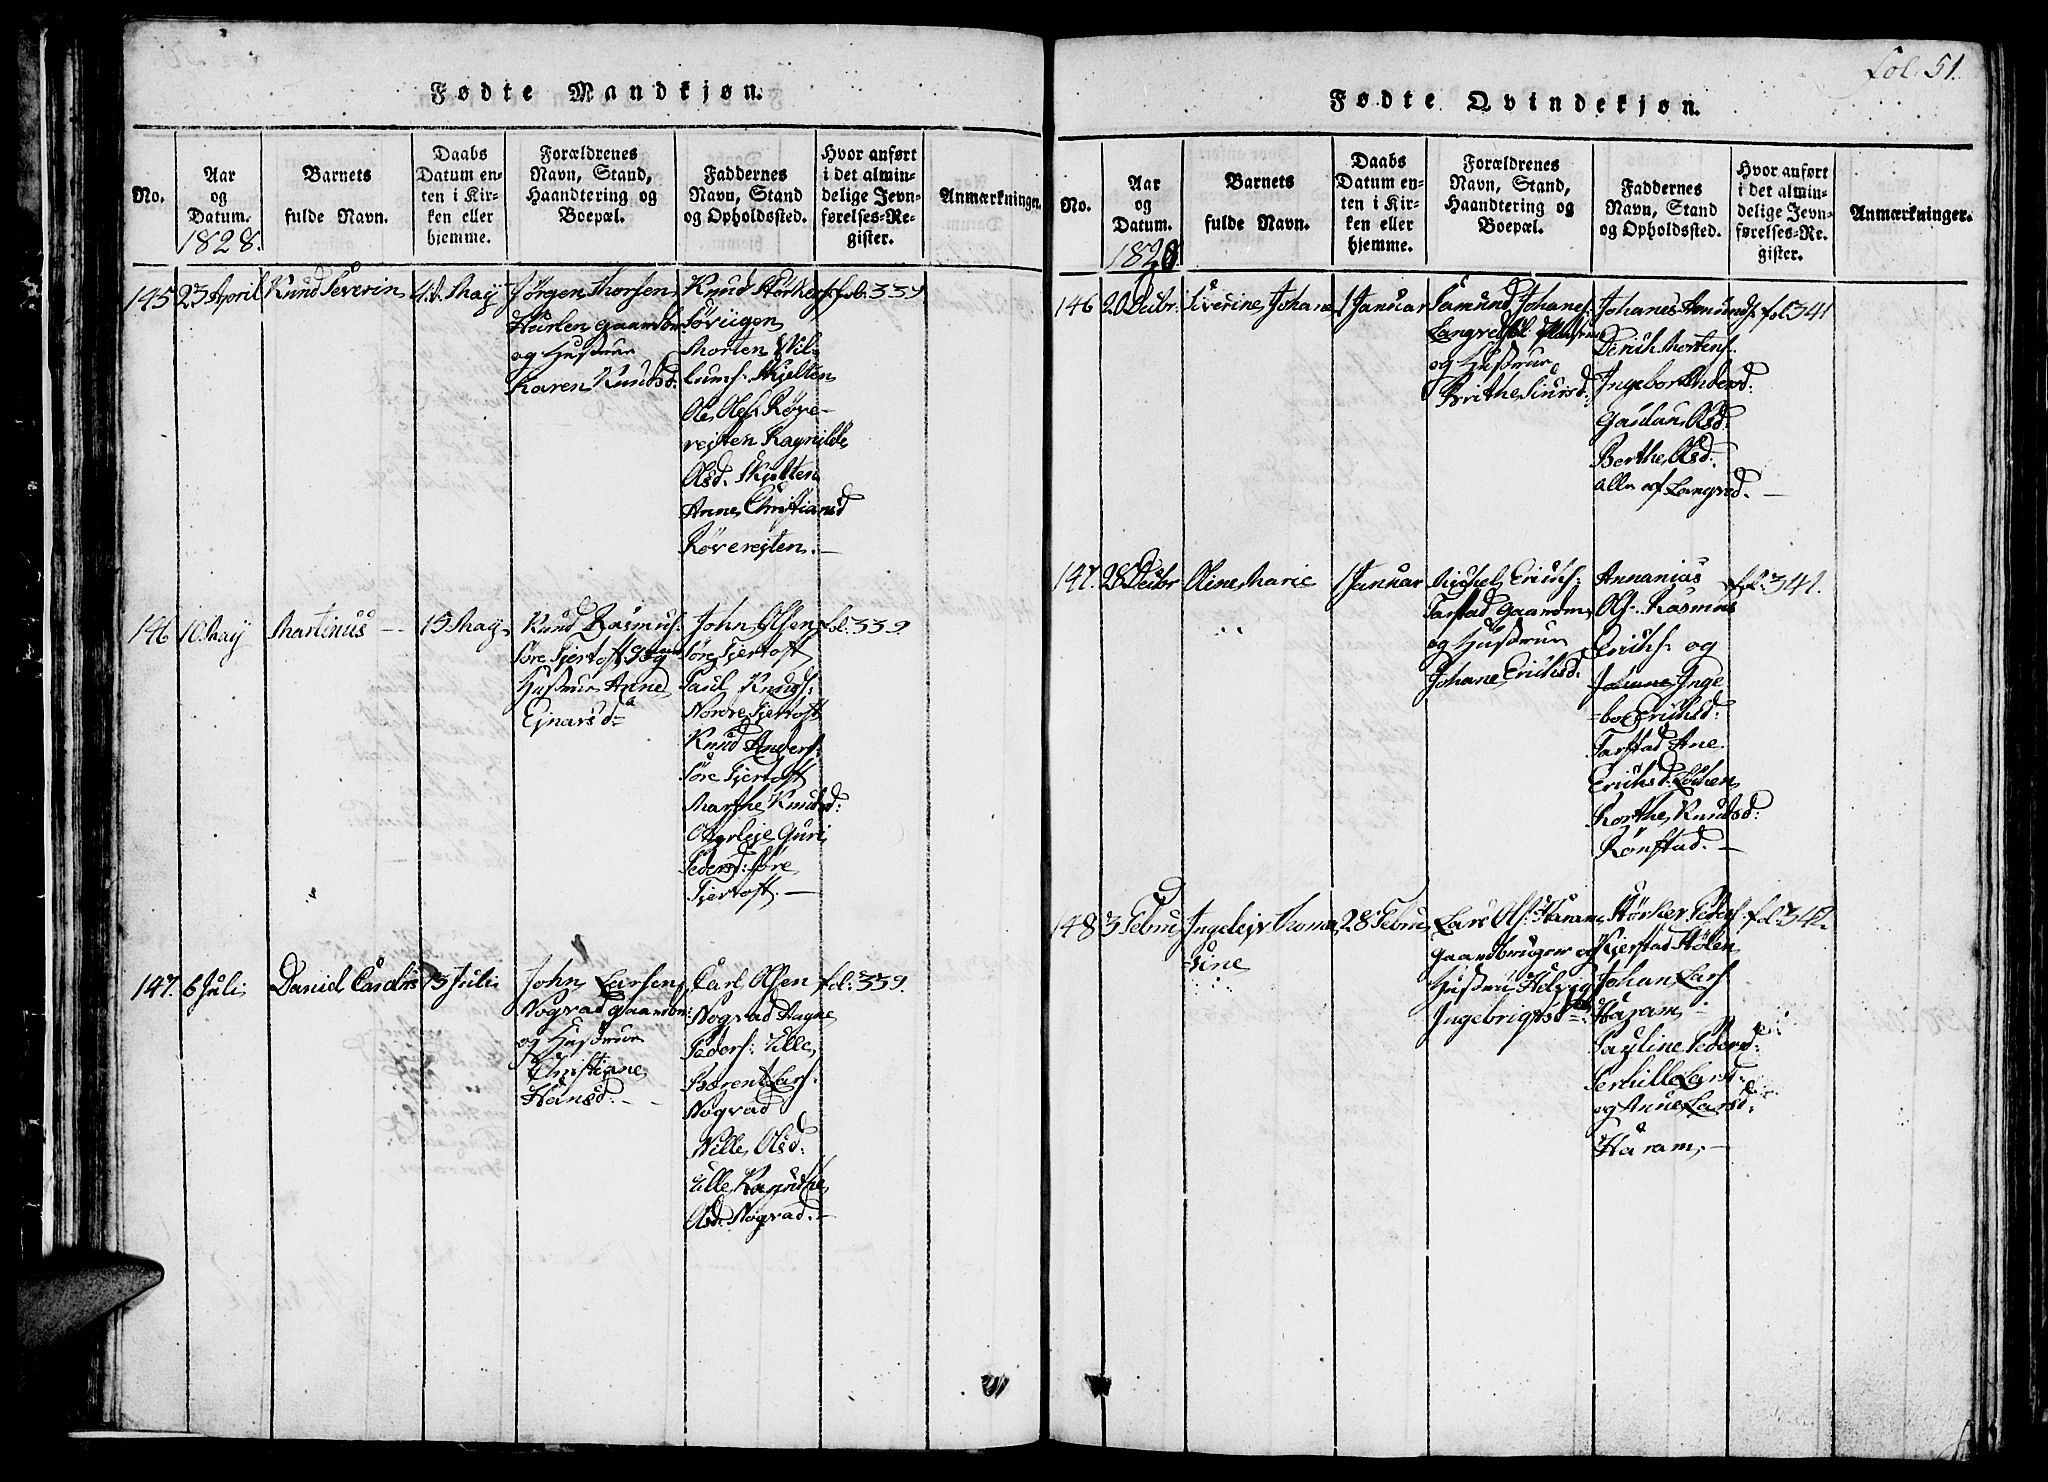 fol. 51.
Fødte Mandkjøn.
No.
Aar
og
Datum.
1828.
Barnets
fulde Navn.
Daabs
Datum en-
ten i Kir-
ken eller
hjemme.
Forældrenes
Navn, Stand,
Haandtering og
Boepæl.
Faddernes
Navn, Stand
og Opholdssted.
Hvor anført
i det almin-
delige Jevn-
førelses-Re-
gister.
Anmærkninger.
145
23 April
Knud Severin
4de May
Jørgen Thorsen
gaardbr
og Hustrue
Karen Knudsd:
Knud Størkers:
Morten Vil-
lums: Skjelten
Ole Ols: Røve-
rejten Ragnilde
Olsd. Skjelten
Anne Christiansd
Røverejten.
fol: 339
146
10 May
Martinus
15 May
Knud Rasmus:
Søre Fjertoft
Hustrue Anne
Ejnarsd
John Olsen
Søre Fjertoft
Paul Knuds:
Nordre Fjertoft
Knud Anders:
Søre Fjertoft
Marthe Knudsd:
Guri
Pedersd: Søre
Fjertoft.
fol: 339.
147.
6 Juli
Daniel Carolus
13 Juli
John Larsen
Nogvad gaardbr:
og Hustrue
Christiane
Hansd.
Carl Olsen
Nogvad Hagne
Peders: Ulle
Berent Lars:
Nogvad
Nille Olsd:
Ulle
Olsd: Nogvad.
fol: 339.
Fødte Qvindekjøn.
No.
Aar
og
Datum.
1828
Barnets
fulde Navn.
Daabs
Datum en-
ten i Kir-
ken eller
hjemme.
Forældrenes
Navn, Stand,
Haandtering og
Boepæl.
Faddernes
Navn, Stand
og Opholdssted.
Hvor anført
i det almin-
delige Jevn-
førelses-Re-
gister.
Anmærkninger.
146
20 Decbr.
Siverine Johane
1 Januar
Samund Johanes:
og Hustrue
Brithe Siursd:
Johanes Amunds:
Derich Mortens:
Ingebor Andersd:
Olsd:
Berthe Olsd:
alle af Langved.
fol: 341
147.
28 Decbr
Oline Marie
1 Januar
Michel Erichs:
Farstad Gaardm
og Hustrue
Johane Erichsd.
Annanias
Ols: Rasmus
Erichs: og
Inge
-bor Erichsd:
Farstad Ane
Erichsd: Løchen
Korthe Knudsd:
Rønstad.
fol: 341.
148
3 Febru
Ingelejv Thoma
sine
28 Febru
Lars Ols: Haram
gaardbruger og
Hustru Helvig
Ingebrigtsd
Størker Peders:
Kjerstad Stølen
Johan Lars:
Haram
Pauline Pedersd:
Pernille Larsd:
og Anne Larsd:
Haram.
fol: 342.